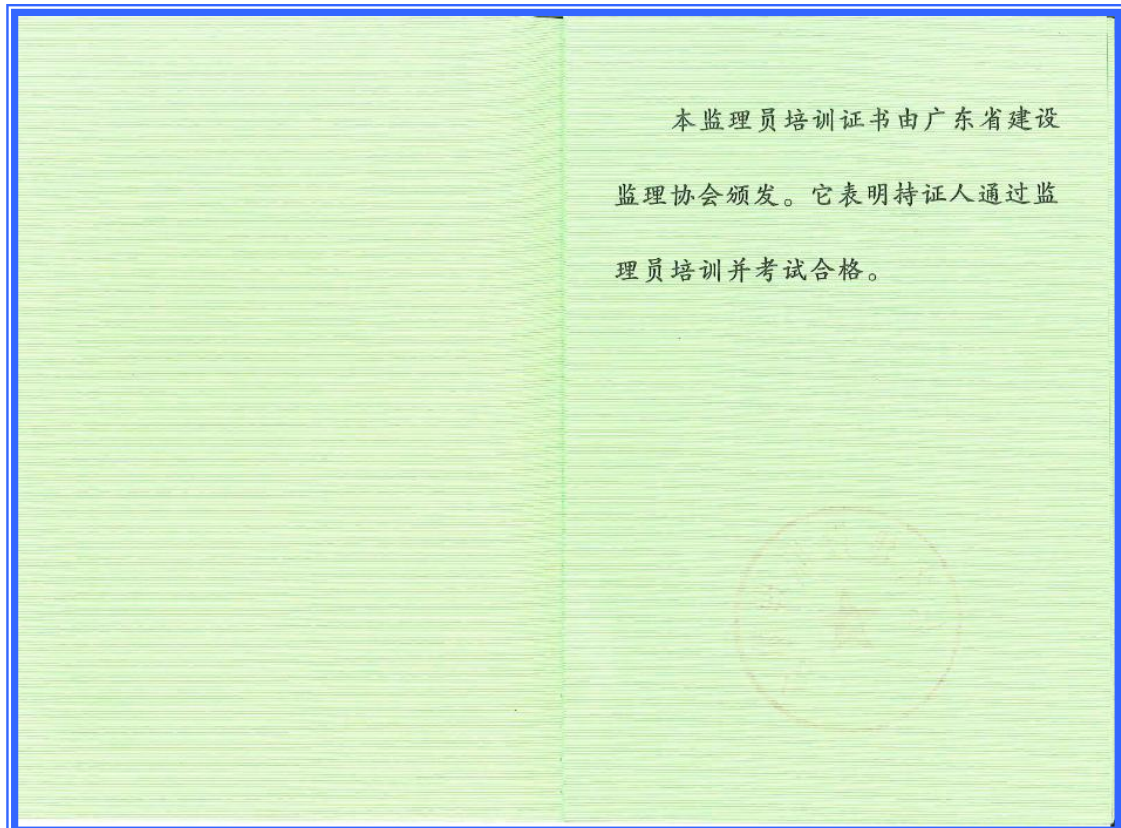 本监理员培训证书由广东省建设
监理协会颁发。它表明持证人通过监
理员培训并考试合格。